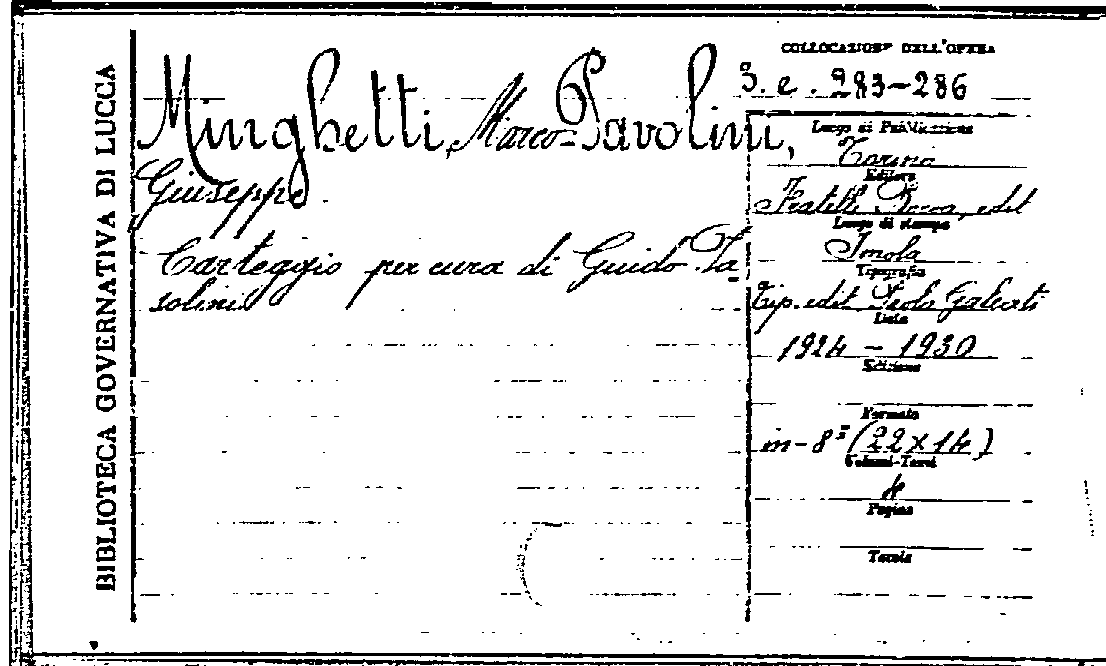 BIBLIOTECA GOVERNATIVA DI LUCCA
Minghetti, Marco - Pavolini,
Giuseppe.
Carteggio per cura di Guido Pa
solini
COLLOCAZIONE DELL'OPERA
3. e. 283-286
Luogo di Pubblicazione
Torino
Editore
Fratelli Bocca, edit
Luogo di stampa
Imola
Tipografia
Tip. edit. Paolo Galeati
Data
1924 - 1930
Edizione
Formato
in-8º (22 x 14)
Volumi-Tomi
4
Pagine
Tavole